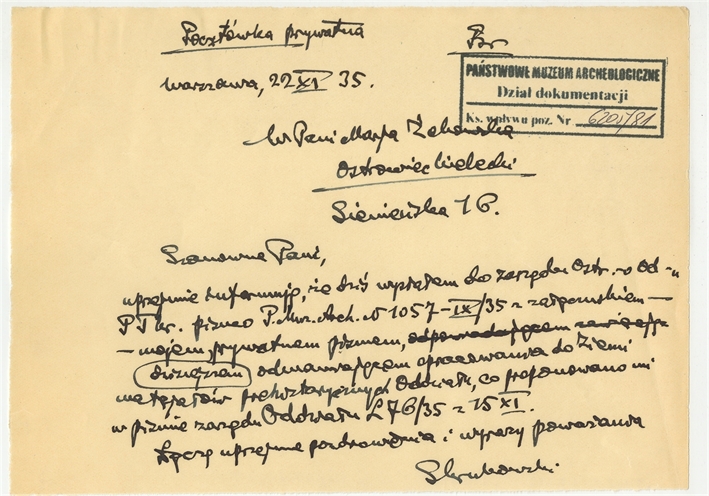 Pocztówka prywatna
Br
PAŃSTWOWE MUZEUM ARCHEOLOGICZNE
Dział dokumentacji
Ks. wpływu poz. Nr 6205/81
Warszawa, 22 XI 35.
W Pani Marja Żakowska
Ostrowiec Kielecki
Sienieńska 16.
Szanowna Pani,
uprzejmie informuję, że dziś wysłałem do zarządu Ostr. Od-
PTKr. pismo P.Muz.Arch. N 1057-IX/35 z załącznikiem —
— mojem prywatnem pismem, odpowiadającem
odmawiającem opracowania do Ziemi
materjałów prehistorycznych Oddziału, co proponowano mi
w piśmie zarządu Oddziału L 76/35 z 15 XI.
Łączę uprzejme pozdrowienia i wyrazy poważania